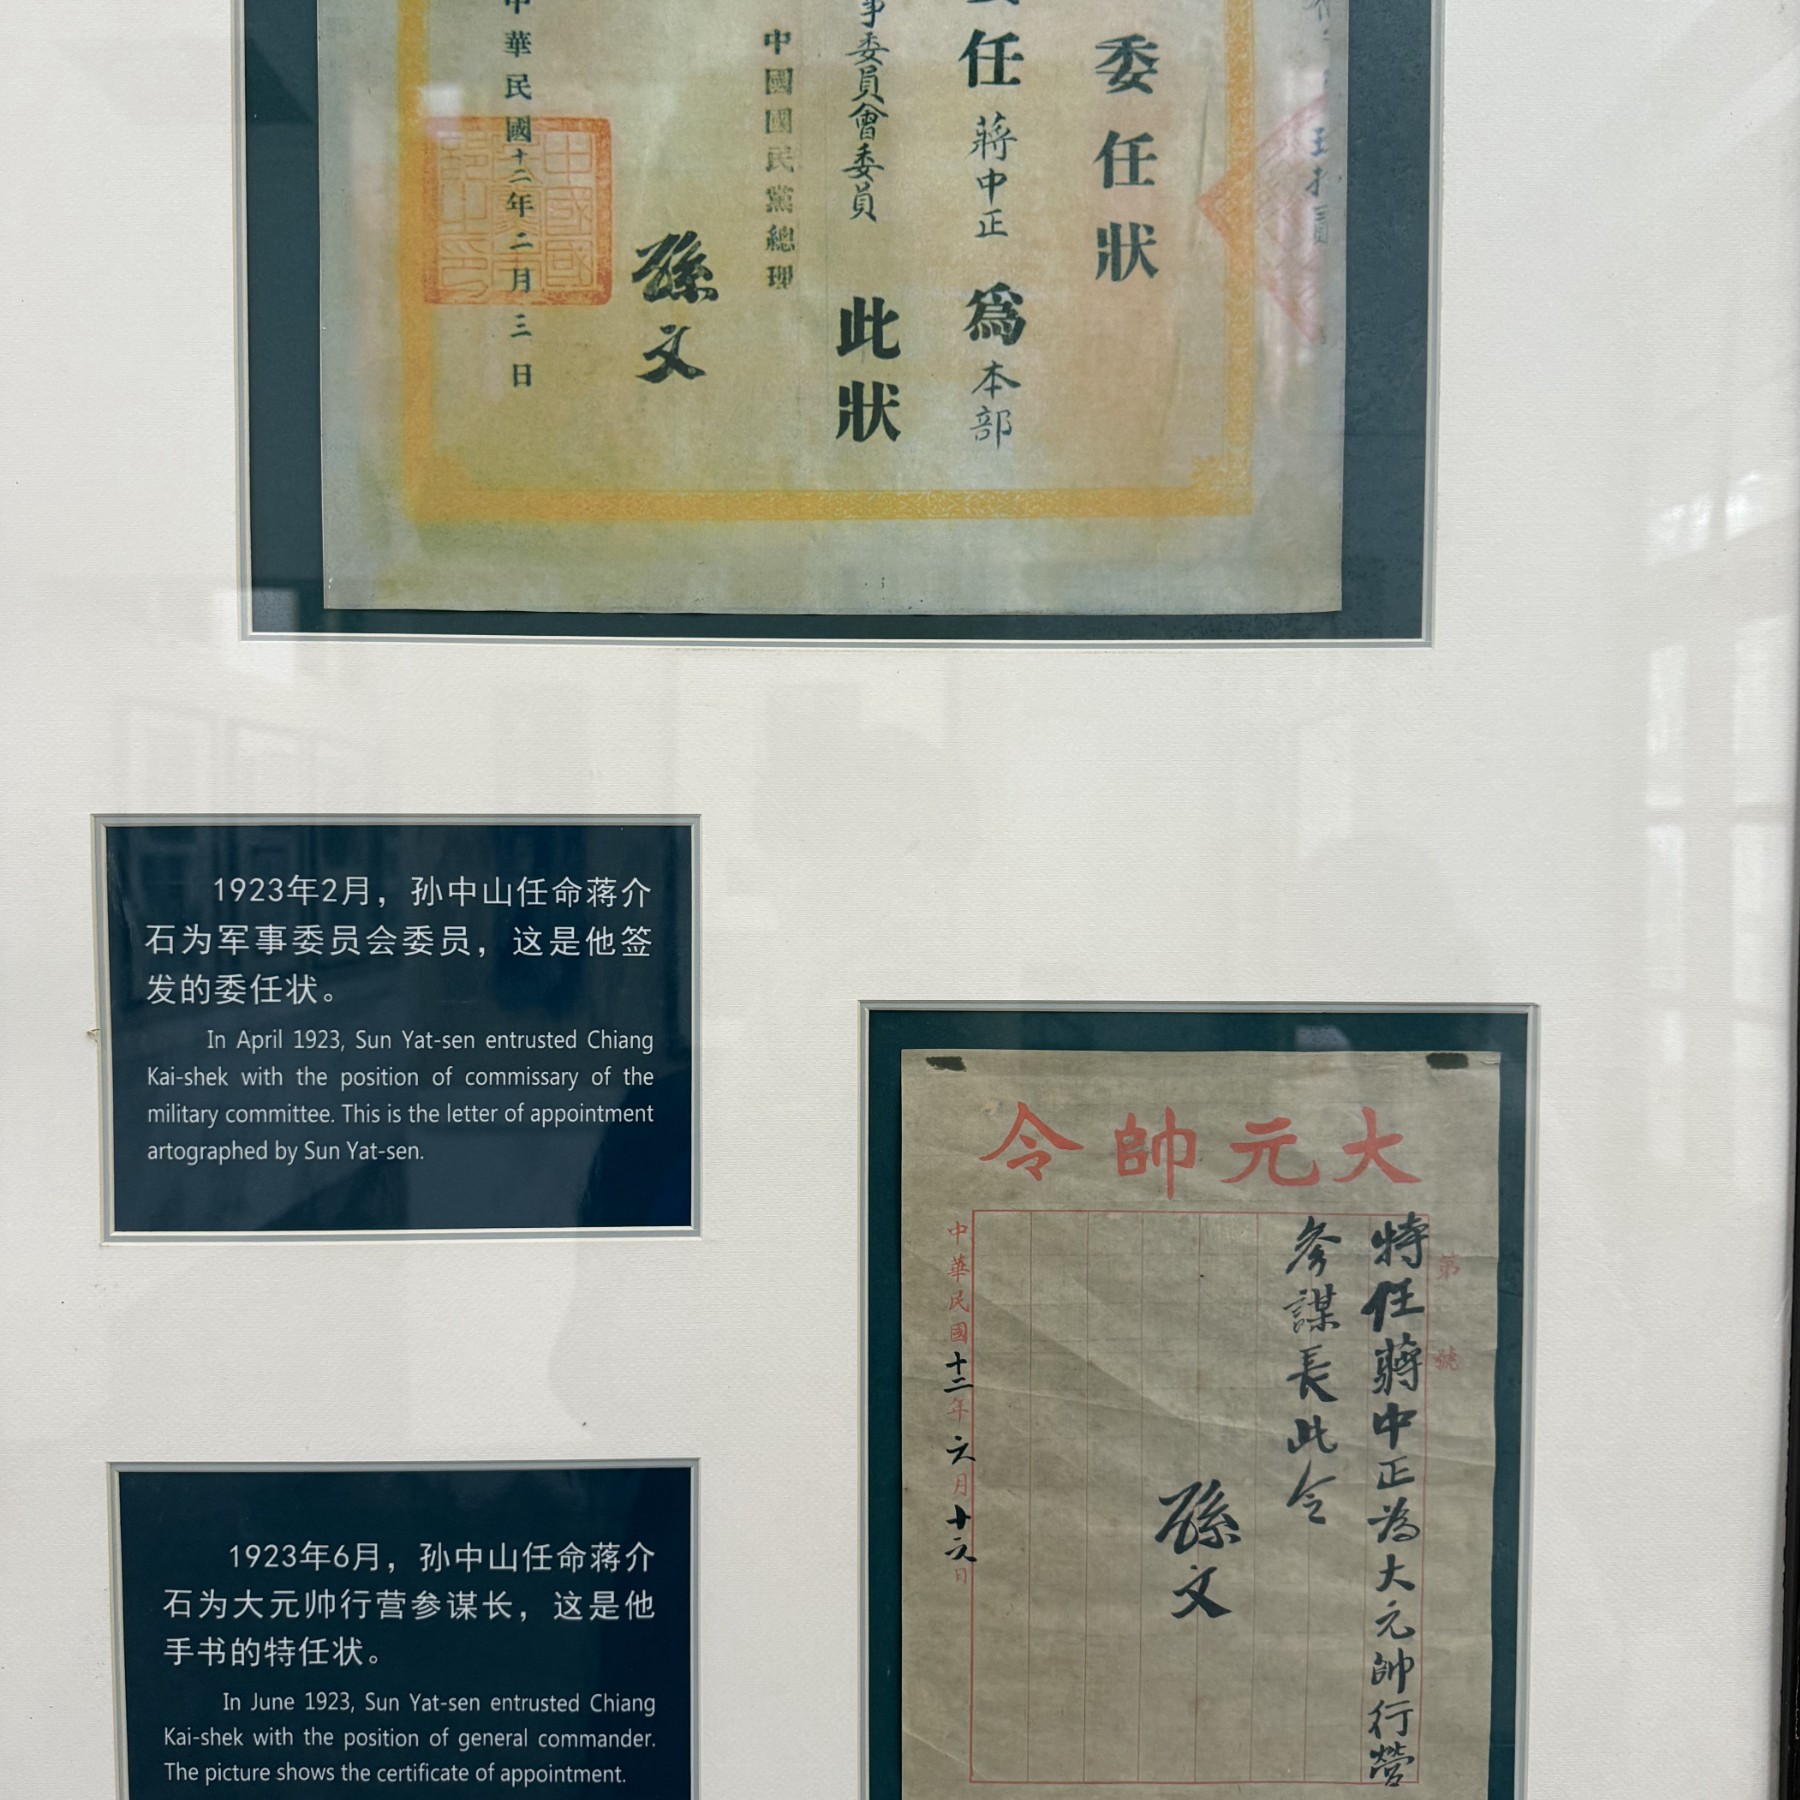 委任狀
任 蔣中正 爲 本部
事委員會委員 此狀
中國國民黨總理
孫文
中華民國十二年二月三日
1923年2月，孙中山任命蒋介
石为军事委员会委员，这是他签
发的委任状。
In April 1923, Sun Yat-sen entrusted Chiang
Kai-shek with the position of commissary of the
military committee. This is the letter of appointment
artographed by Sun Yat-sen.
大元帥令
第 號
特任蔣中正為大元帥行營
參謀長此令
孫文
中華民國十二年六月十六日
1923年6月，孙中山任命蒋介
石为大元帅行营参谋长，这是他
手书的特任状。
In June 1923, Sun Yat-sen entrusted Chiang
Kai-shek with the position of general commander.
The picture shows the certificate of appointment.